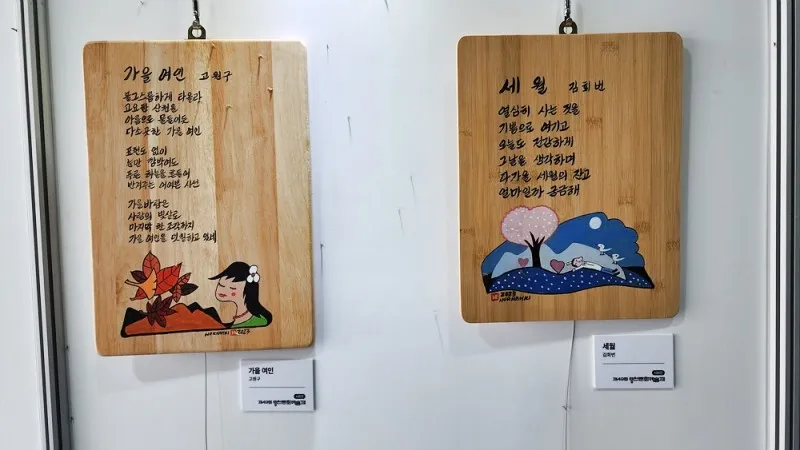 가을 여인 고원구
불그스름하게 타올라
고요함 산천을
마음으로 물들여도
다소곳한 가을 여인
표현도 없이
눈만 깜박여도
푸른 하늘을
반겨주는 어여쁜 시선
가을바람은
사랑의 빛살로
마지막 한 조각까지
가을 여인을 덧칠하고 있네
가을 여인
고원구
세월 김회번
열심히 사는 것을
기쁨으로 여기고
오늘도 장감하게
그날을 생각하며
다가올 세월의 잔고
얼마인가 궁금해
2023
세월
김회번